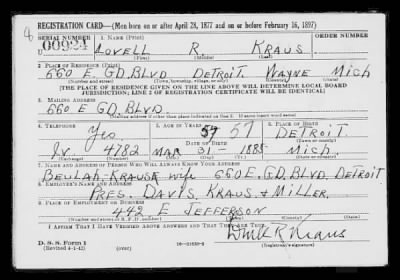 REGISTRATION CARD—(Men born on or after April 28, 1877 and on or before February 16, 1897)
SERIAL NUMBER 1. NAME (Print) ORDER NUMBER
00924 LOVELL R. KRAUS
2. PLACE OF RESIDENCE (Print)
660 E. GD. BLVD DETROIT. WAYNE MICH
(Number and street) (Town, township, village, or city) (County) (State)
[THE PLACE OF RESIDENCE GIVEN ON THE LINE ABOVE WILL DETERMINE LOCAL BOARD
JURISDICTION; LINE 2 OF REGISTRATION CERTIFICATE WILL BE IDENTICAL]
3. MAILING ADDRESS
660 E. GD. BLVD.
[Mailing address if other than place indicated on line 2. If same insert word same]
4. TELEPHONE 5. AGE IN YEARS 6. PLACE OF BIRTH
Yes 57 DETROIT
DATE OF BIRTH
4782 MAR 31 1885 Mich.
(Exchange) (Number) (Mo.) (Day) (Yr.) (State or country)
7. NAME AND ADDRESS OF PERSON WHO WILL ALWAYS KNOW YOUR ADDRESS
BEULAH KRAUSE wife 660 E. GD. BLVD. DETROIT
8. EMPLOYER'S NAME AND ADDRESS
PRES. DAVIS, KRAUS & MILLER.
9. PLACE OF EMPLOYMENT OR BUSINESS
442 E JEFFERSON
(Number and street or R. F. D. number) (Town) (County) (State)
I AFFIRM THAT I HAVE VERIFIED ABOVE ANSWERS AND THAT THEY ARE TRUE.
D. S. S. Form 1
(Revised 4-1-42) R Kraus